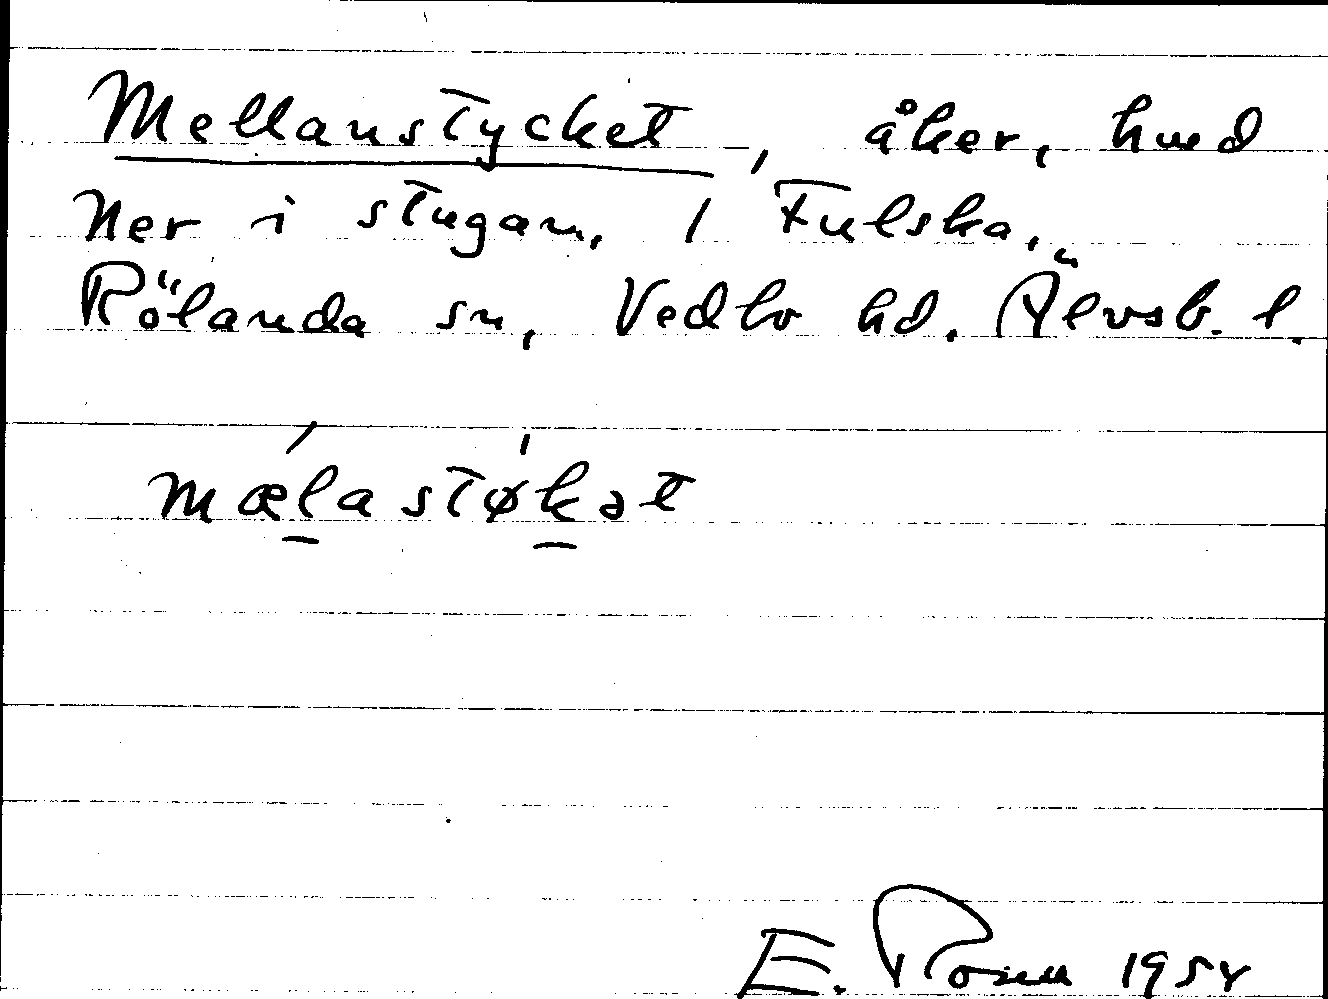 Mellanstycket, åker, hmd
Ner i stugan, 1 Fulska,
Rölanda sn, Vedbo hd. Älvsb. l.
mælastøkət
E. Rosell 1954